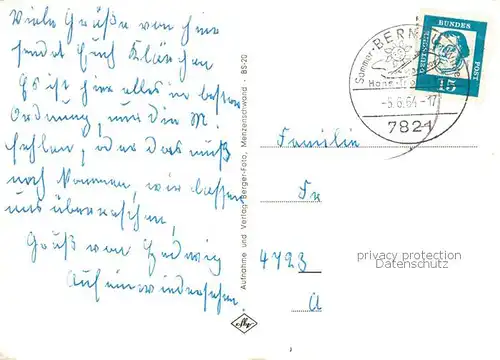 Viele Grüße von hier
sendet Euch Klärchen
Es ist hier alles in bester
Ordnung, nur die M.
fehlen, oder das muß
noch kommen, wir lassen
uns überraschen,
Gruß von Hedwig
Auf ein wiedersehen.
Aufnahme und Verlag Berger-Foto, Menzenschwand - BS-20
Sommer- BERN
Hans-
-5.6.64-17
7821
DEUTSCHE
BUNDES
POST
15
Familie
Fr
4723
A
privacy protection
Datenschutz